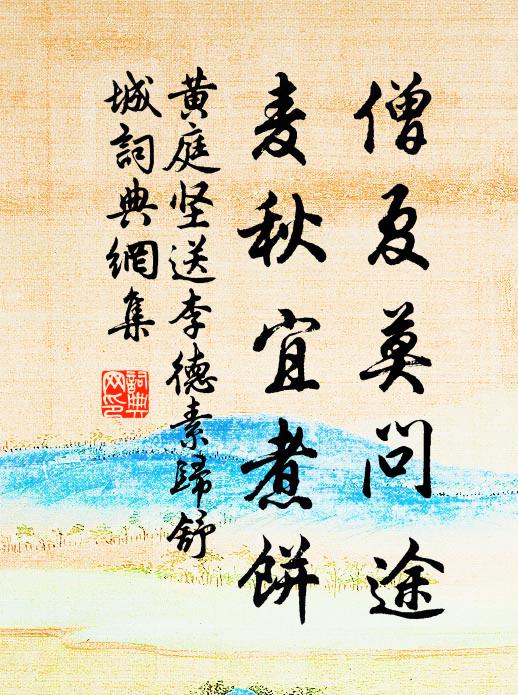 僧夏莫问途
麦秋宜煮餅
黄庭坚送李德素歸舒
城詞典網集
詞典
网印